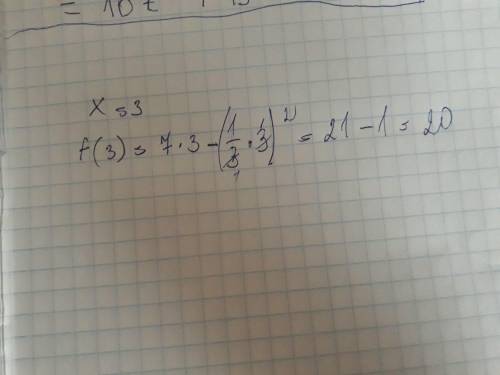 x = 3
f(3) = 7 · 3 - (1/3 · 3)² = 21 - 1 = 20